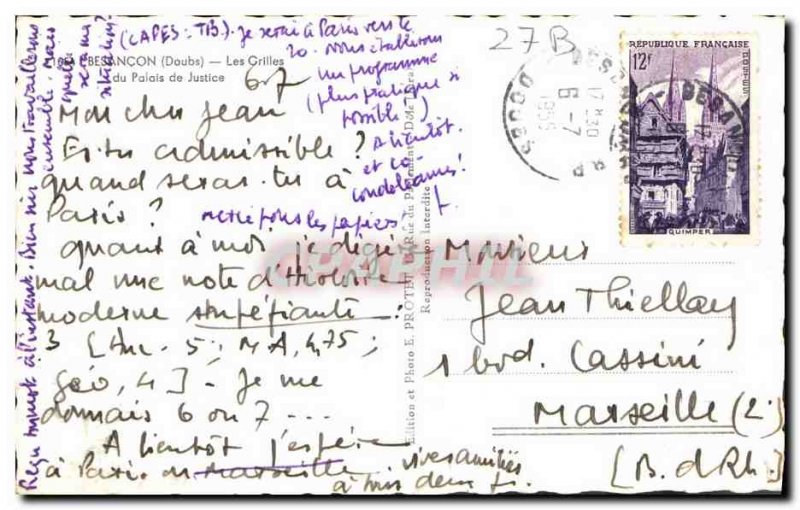 BESANÇON (Doubs) — Les Grilles
du Palais de Justice
6.7
Mon cher Jean
Es-tu admissible ?
quand seras-tu à
Paris ?
quant à moi, je digère
mal une note d'Histoire
moderne stupéfiante :
3 [Anc. 5 ; M.A, 4,75 ;
Géo, 4] - Je me
donnais 6 ou 7 ...
A bientôt j'espère
à Paris ou Marseille.
vives amitiés
à tous deux
(CAPES : TB). Je serai à Paris vers le
20. Nous établirons
un programme
(plus pratique si
possible !)
A bientôt.
et
condoléances !
merci pour les papiers
Reçu à l'instant. Bien sûr nous travaillerons
ensemble. Mais
quelle
sera ma
situation ?
Edition et Photo E. PROTET, Rue du Parlement, Dole (Jura)
Reproduction Interdite
27B
BESANÇON
DOUBS
17H30
6-7
1955
RÉPUBLIQUE FRANÇAISE
12F
POSTES
QUIMPER
Monsieur
Jean Thiellay
1 bvd. Cassini
Marseille (2.)
[B. d Rh.]
CPAPHIL